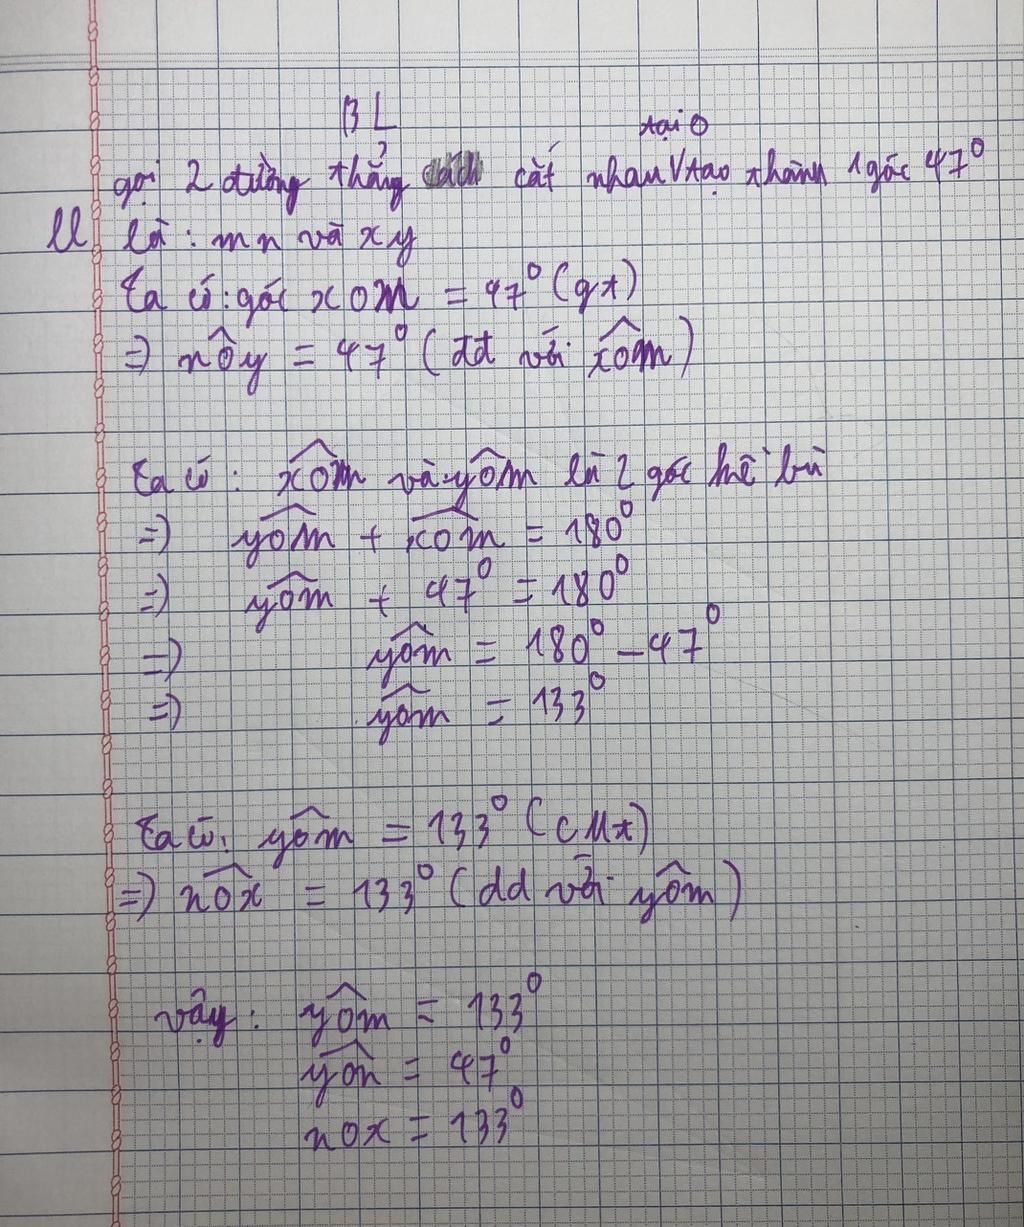 BL
tại O
gọi 2 đường thẳng cắt nhau V tạo thành 1 góc 47°
là : mn và xy
Ta có : góc xOm = 47° (gt)
=> nOy = 47° (đđ với xOm)
Ta có : xOm và yOm là 2 góc kề bù
=> yOm + xOm = 180°
=> yOm + 47° = 180°
=> yOm = 180° - 47°
=> yOm = 133°
Ta có : yOm = 133° (CMt)
=> nOx = 133° (dd với yOm)
vậy : yOm = 133°
yOn = 47°
nOx = 133°